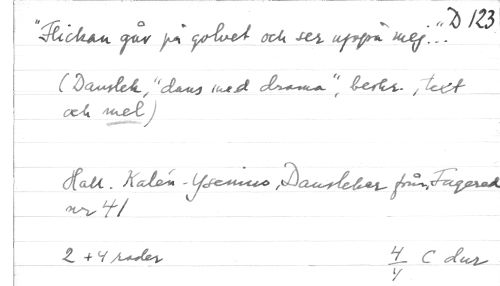 "Flickan går på golvet och ser uppå mej..." D 123
(Danslek, "dans med drama", beskr., text
och mel)
Hall. Kalén - Ysenius, Danslekar från Fagered
nr 41
2 + 4 rader 4/4 C dur